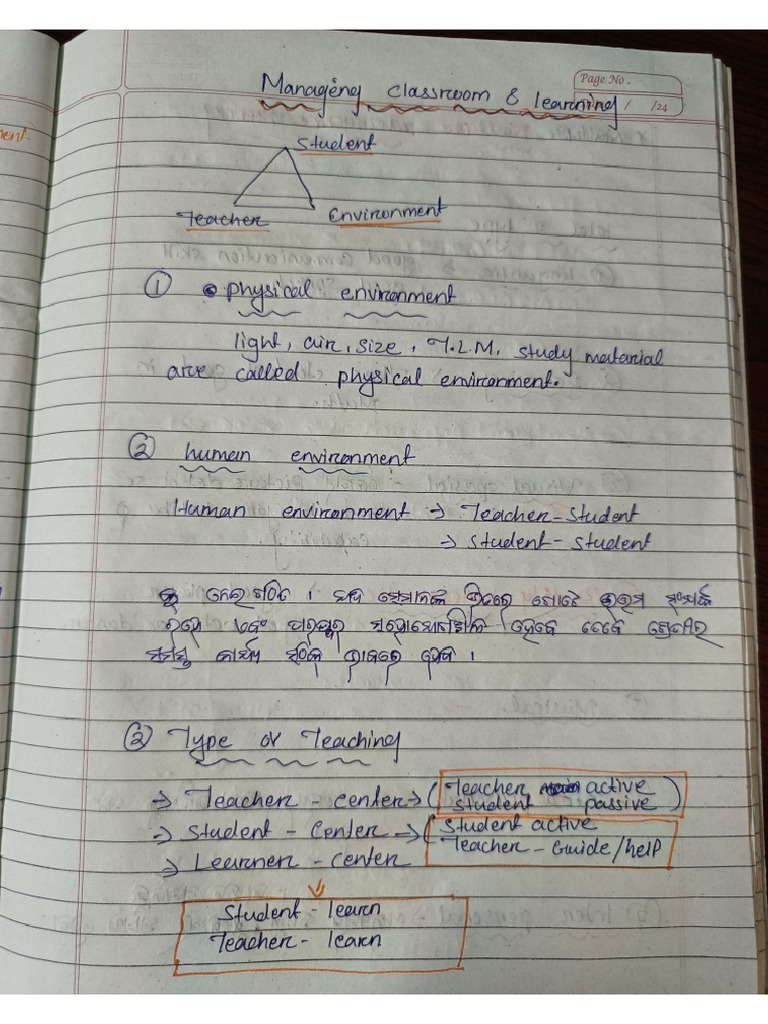 Page No.
/ /24
Managing classroom & learning
Student
Teacher Environment
① physical environment
light, air, size, T.L.M, study matarial
are called physical environment.
② human environment
Human environment → Teacher-Student
→ Student-Student
ନେଇ ଗଠିତ । ଯଦି ସେମାନଙ୍କ ଭିତରେ ଗୋଟେ ଭଲ ସଂପର୍କ
ରହେ ଏବଂ ପରସ୍ପର ସହଯୋଗଶୀଳ ହେବେ ତେବେ ଶ୍ରେଣୀର
ସମସ୍ତ କାର୍ଯ୍ୟ ସଠିକ୍ ଭାବରେ ହେବ ।
② Type or Teaching
→ Teacher - center → (Teacher active
Student passive)
→ Student - Center → (Student active
Teacher - Guide/help
→ Learner - center
Student - learn
Teacher - learn